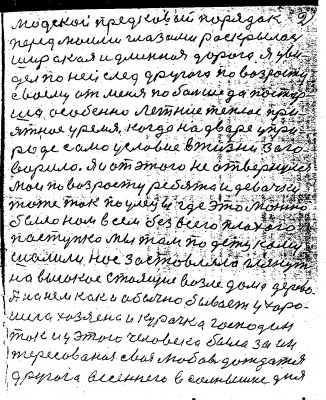 людской предковый порядак
перед моими глазами раскрылась
широкая и длинная дорога. Я уви
дел по ней след другога по возросту
своему от меня побольше да посту
особенно летние теплое при
ятное уремя, когда на дваре у при
роде само условие в жизни заго
ворило. Я от этого не отвернулся
мои по возросту ребята и девачки
тоже так по улицы где это можно
было нам всем без всего плахого
паступка мы там по децку
шалили, нас заставляло глянуть
на высокое стоящие возле дома дерево.
Я на нем как и обычно бывает у харо-
шега хозяена и курачка господин
так и у этого человека была за ин
тересованая своя любовь дождатся
другога весеннего в солнышке дня